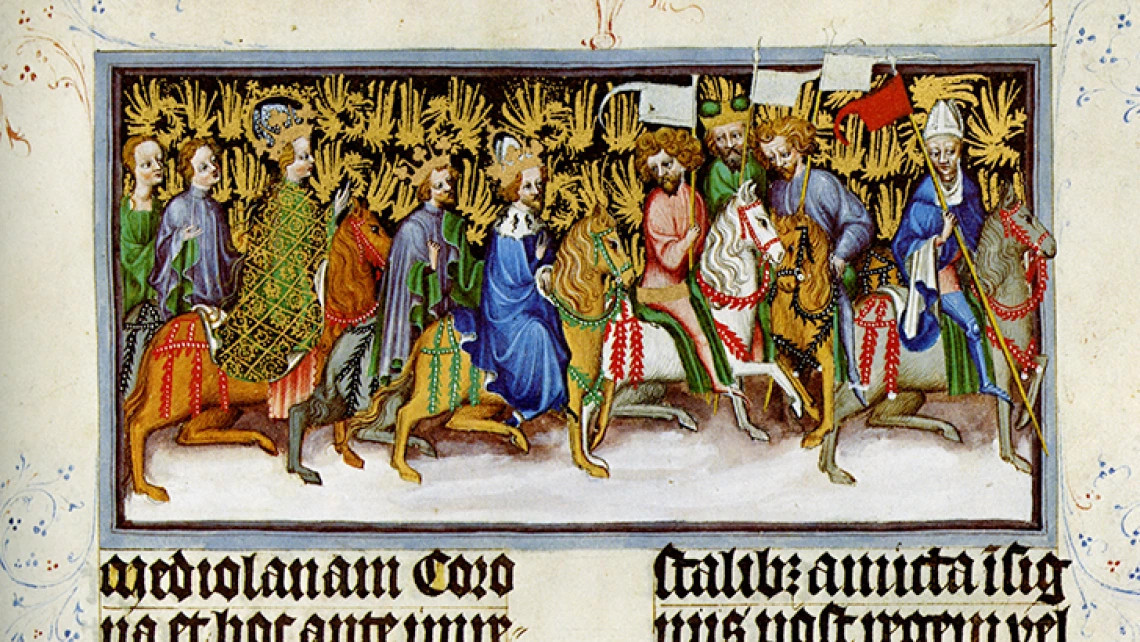 mediolanam Coro
na et hoc ante impe⸗
stalibꝫ amicta īsig
niis post regem vel